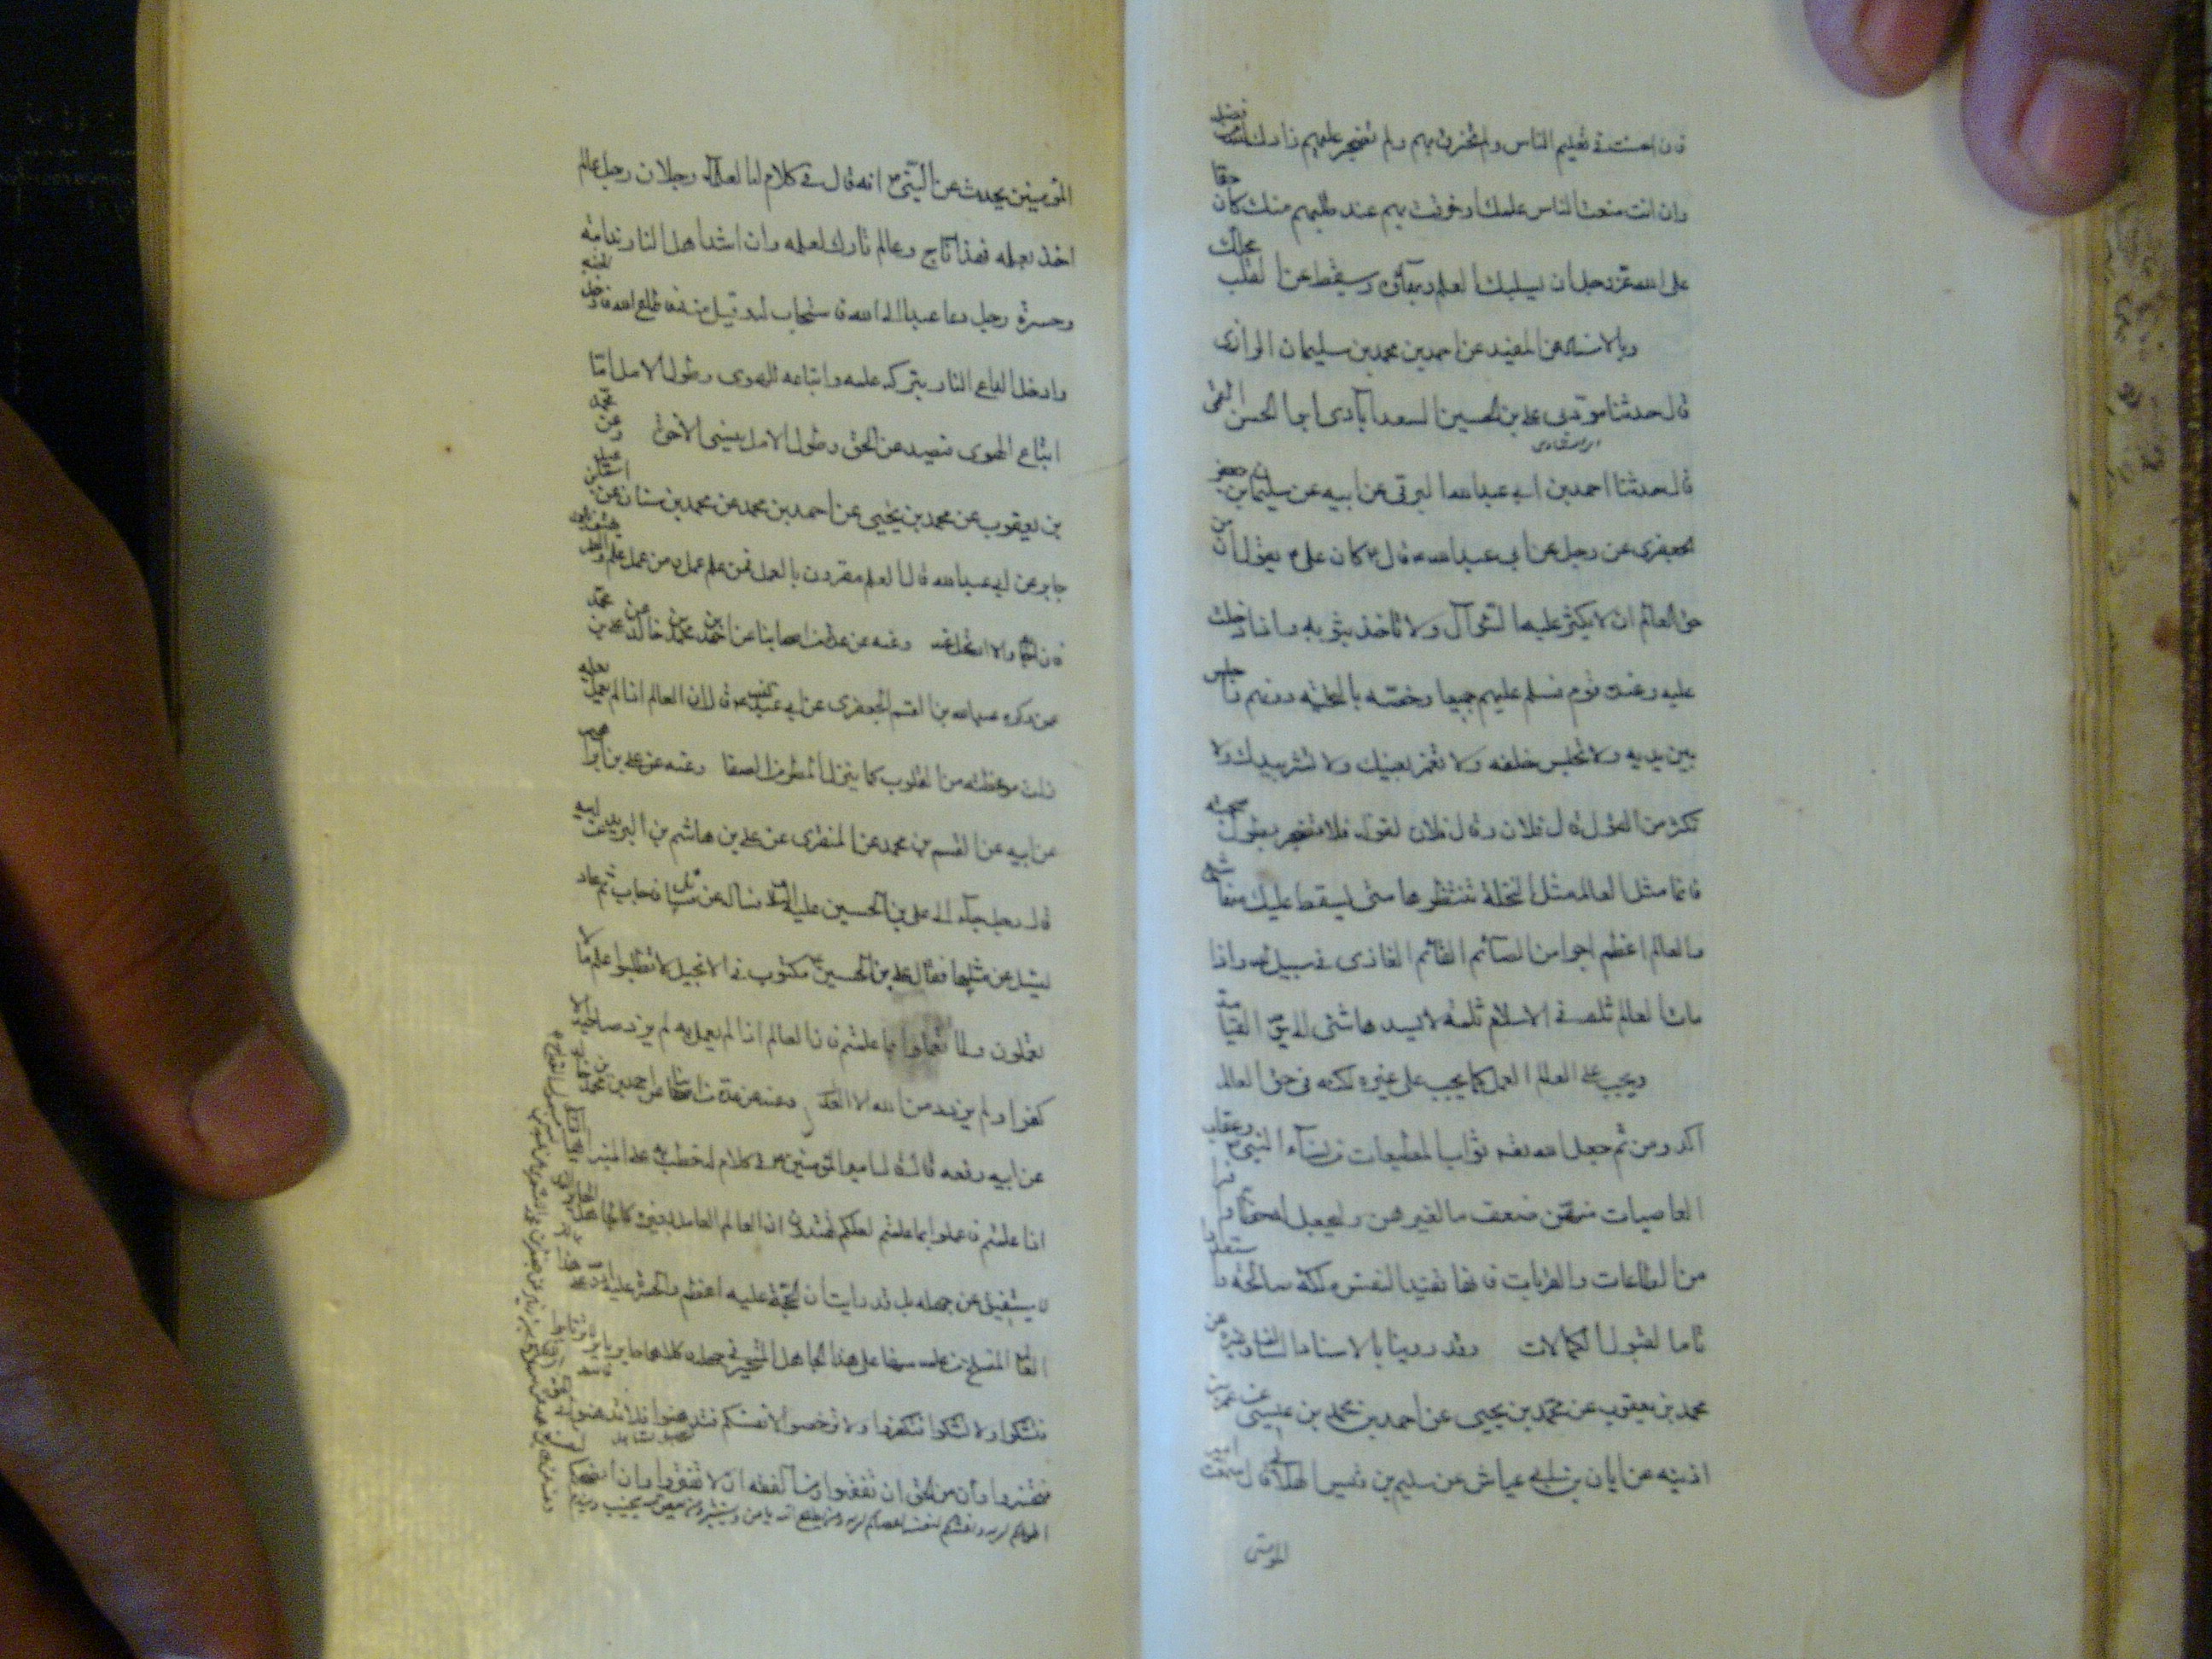 فان احسنت فى تعليم الناس ولم تخرق بهم ولم تضجر عليهم زادك الله من فضله
وان انت منعت الناس علمك او خرقت بهم عند طلبهم منك كان حقا
على الله عز وجل ان يسلبك العلم وبهآئه ويسقط من القلب محلك
وبالاسناد عن المفيد عن احمد بن محمد بن سليمان الزرارى
قال حدثنا مودبى على بن الحسين السعدآبادى ابو الحسن القمى
قال حدثنا احمد بن ابى عبد الله البرقى عن ابيه عن سليمان بن جعفر
الجعفرى عن رجل عن ابى عبد الله قال كان على يقول ان من
حق العالم ان لا يكثر عليه السؤآل ولا تاخذ بثوبه واذا دخلت
عليه وعنده قوم فسلم عليهم جميعا وخصه بالتحية دونهم واجلس
بين يديه ولا تجلس خلفه ولا تغمز بعينيك ولا تشر بيدك ولا
تكثر من القول قال فلان وقال فلان لقوله فلا تضجر بطول صحبته
فانما مثل العالم مثل النخلة تنتظرها متى يسقط عليك منها شئ
والعالم اعظم اجرا من الصآئم القآئم الغازى فى سبيل الله واذا
مات العالم ثلم فى الاسلام ثلمة لا يسدها شئ الى يوم القيامة
ويجب على العالم العمل كما يجب على غيره لكنه فى حق العالم
اكد ومن ثم جعل الله ثواب المطيعات من نسآء النبى وعقاب
العاصيات منهن ضعف ما لغيرهن وليجعل له حظا وافرا
من الطاعات والقربات فانها تفيد النفس ملكة صالحة واستعدادا
تاما لقبول الكمالات وقد روينا بالاسناد السابق وغيره عن
محمد بن يعقوب عن محمد بن يحيى عن احمد بن محمد بن عيسى عن عمر بن
اذينه عن ابان بن ابى عياش عن سليم بن قيس الهلالى قال سمعت امير
المؤمنين
المؤمنين يحدث عن النبى انه قال فى كلام له العلمآء رجلان رجل عالم
اخذ بعلمه فهذا ناج وعالم تارك لعلمه وان اشد اهل النار ندامة
وحسرة رجل دعا عبدا الى الله فاستجاب له وقبل منه فاطاع الله فادخل الجنة
وادخل الداعى النار بتركه علمه واتباعه الهوى وطول الامل اما
اتباع الهوى فيصد عن الحق وطول الامل ينسى الآخرة وعن محمد
بن يعقوب عن محمد بن يحيى عن احمد بن محمد عن محمد بن سنان عن اسمعيل بن
جابر عن ابى عبد الله قال العلم مقرون بالعمل فمن علم عمل ومن عمل علم والعلم يهتف بالعمل
فان اجابه والا ارتحل عنه وعنه عن عدة من اصحابنا عن احمد بن محمد بن خالد عن على بن محمد
عمن ذكره عن عبد الله بن القسم الجعفرى عن ابى عبد الله قال ان العالم اذا لم يعمل بعلمه
زلت موعظته من القلوب كما يزل المطر من الصفا وعنه عن على بن ابراهيم
عن ابيه عن القسم بن محمد عن المنقرى عن على بن هاشم بن البريد عن ابيه
قال رجل جآء الى على بن الحسين عليه السلام فساله عن مسايل فاجاب ثم عاد
ليسئل عن مثلها فقال على بن الحسين مكتوب فى الانجيل لا تطلبوا علم ما لا
تعملون ولما تعملوا بما علمتم فان العالم اذا لم يعمل به لم يزد صاحبه الا
كفرا ولم يزدد من الله الا بعدا وعنه عن عدة من اصحابنا عن احمد بن محمد بن خالد
عن ابيه رفعه قال قال امير المؤمنين فى كلام له خطب به على المنبر
اذا علمتم فاعملوا بما علمتم لعلكم تهتدون ان العالم العامل بغيره كالجاهل الحاير
لا يستفيق عن جهله بل قد رايت ان الحجة عليه اعظم والحسرة عليه ادوم على
العالم المنسلخ من علمه منها على هذا الجاهل المتحير فى جهله وكلاهما حاير باير لا ترتابوا
فتشكوا ولا تشكوا فتكفروا ولا ترخصوا لانفسكم فتدهنوا ولا تدهنوا
فتخسروا وان من الحق ان تفقهوا ومن الفقه ان لا تغتروا وان انصحكم
اطوعكم لربه واغشكم لنفسه اعصاكم لربه ومن يطع الله يامن ويستبشر ومن يعص الله يخب ويندم